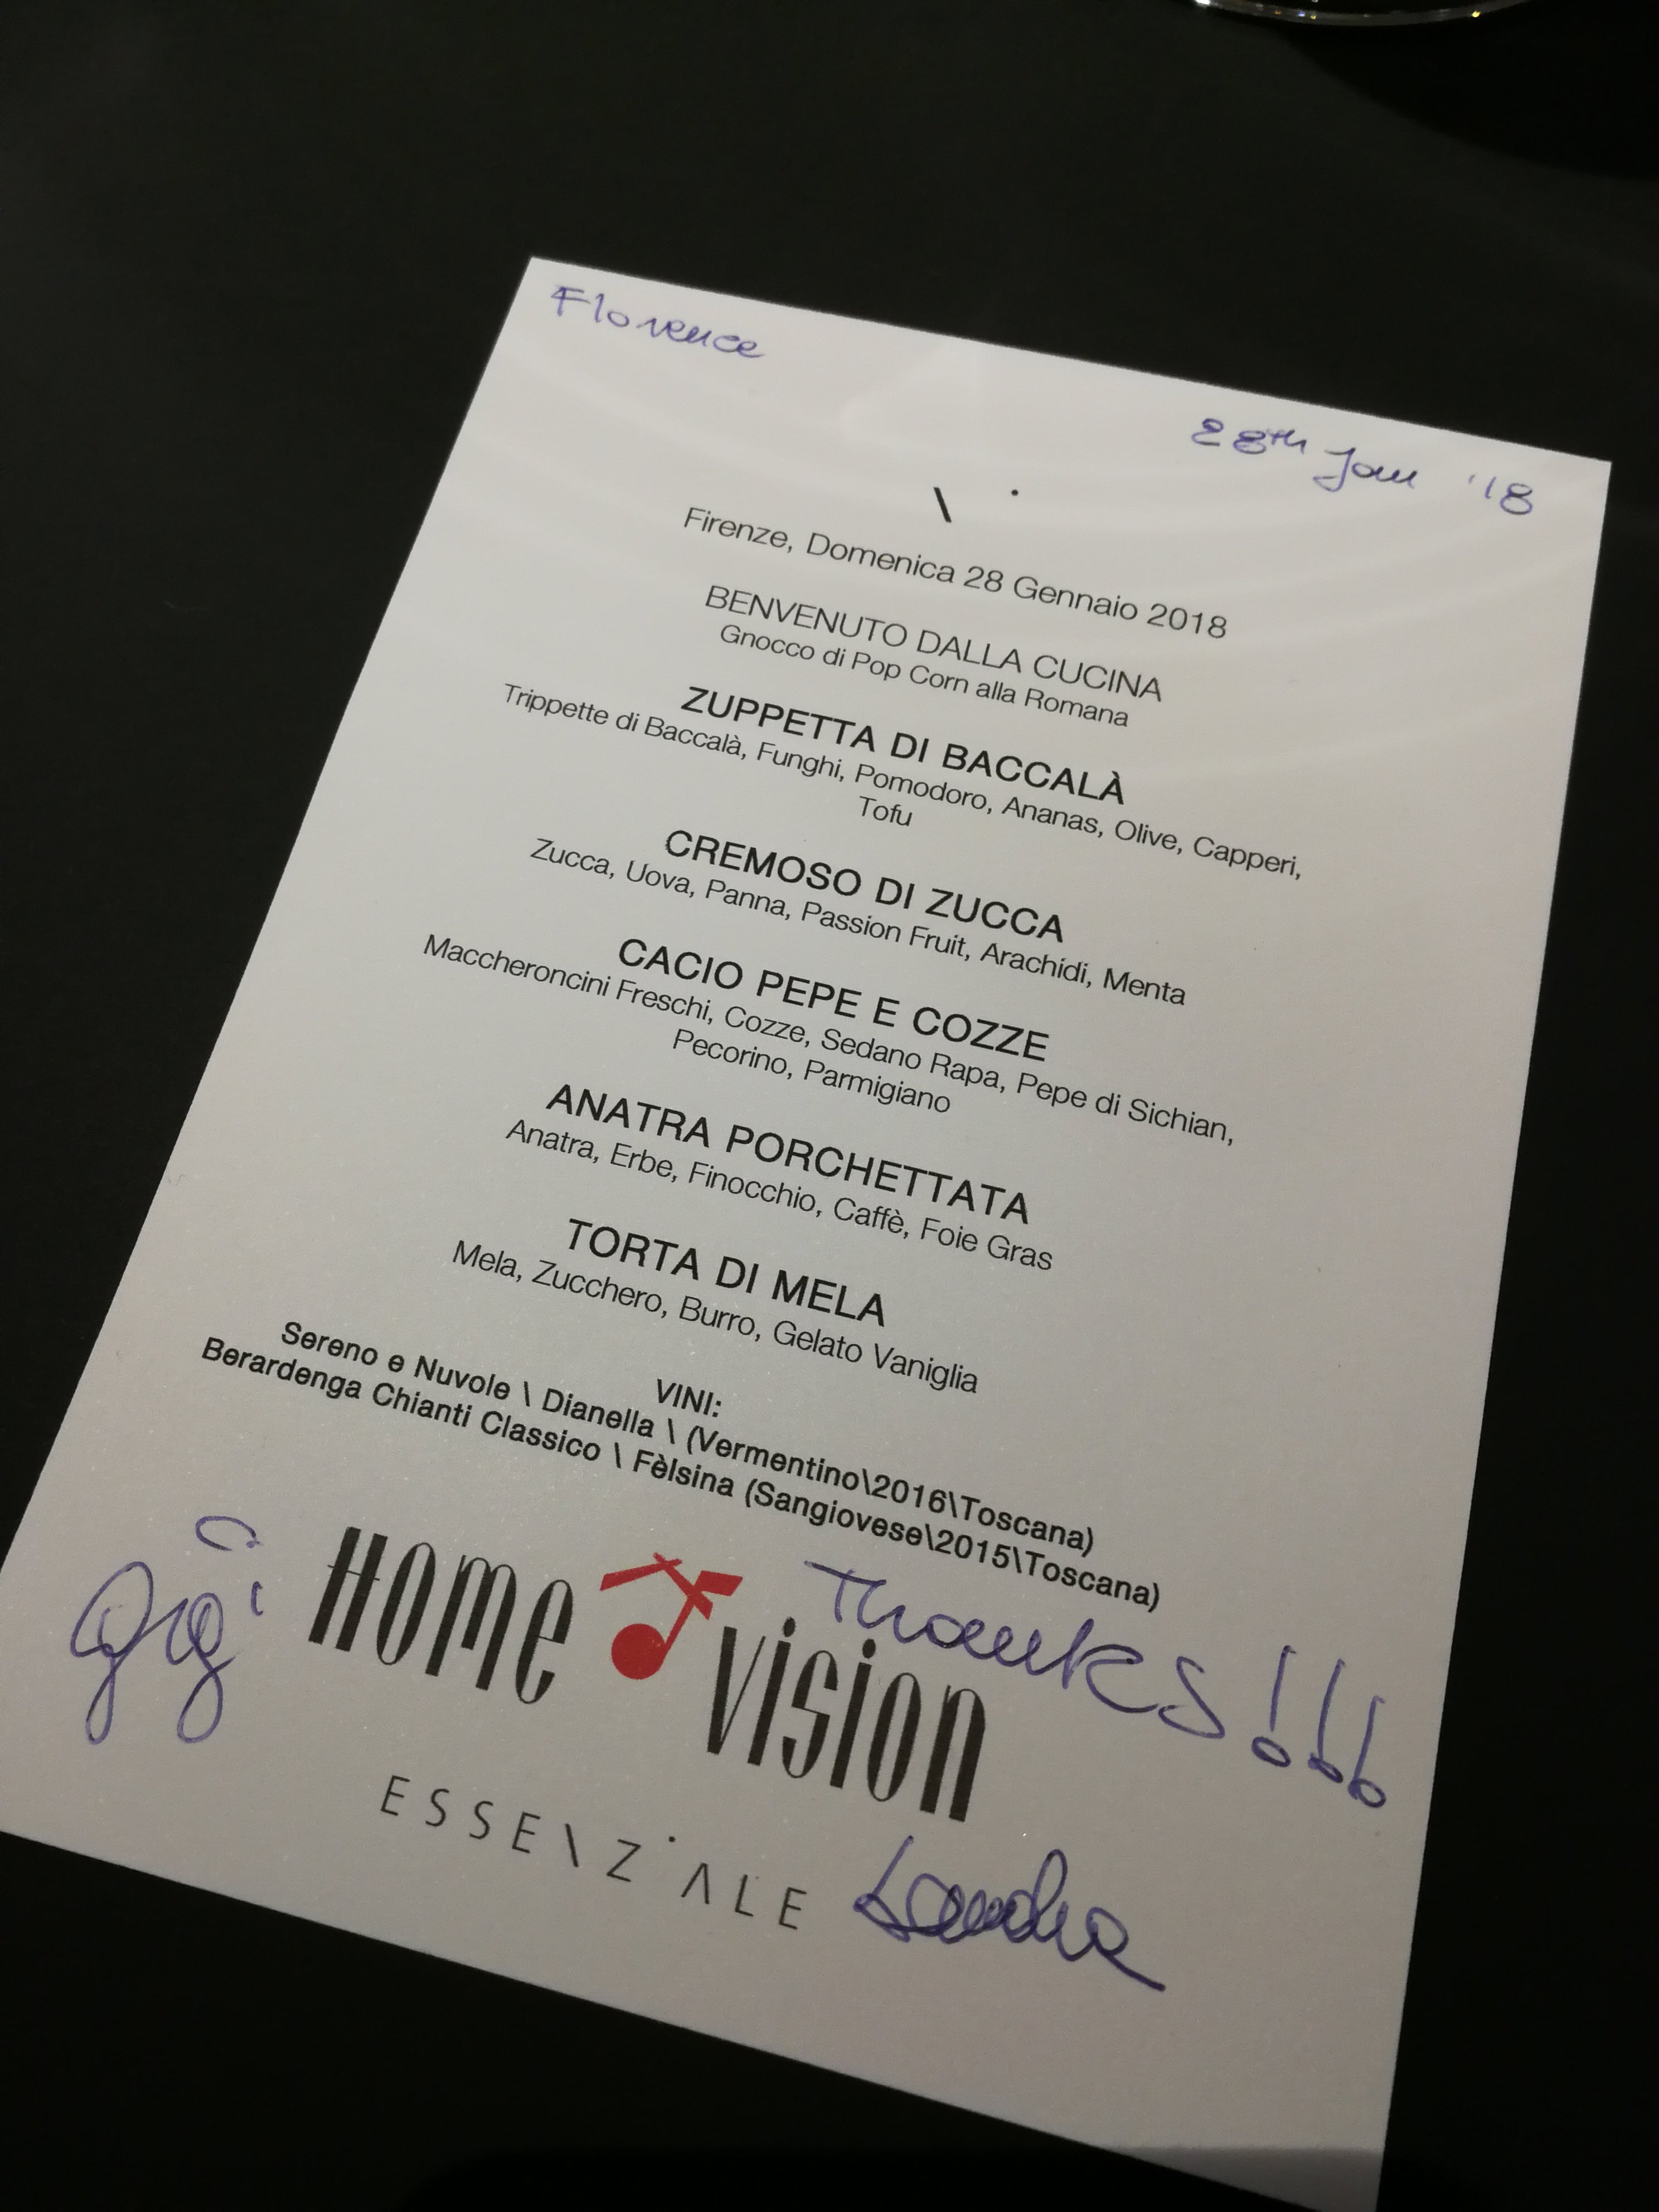 Florence
28th Jan '18
\ ·
Firenze, Domenica 28 Gennaio 2018
BENVENUTO DALLA CUCINA
Gnocco di Pop Corn alla Romana
ZUPPETTA DI BACCALÀ
Trippette di Baccalà, Funghi, Pomodoro, Ananas, Olive, Capperi,
Tofu
CREMOSO DI ZUCCA
Zucca, Uova, Panna, Passion Fruit, Arachidi, Menta
CACIO PEPE E COZZE
Maccheroncini Freschi, Cozze, Sedano Rapa, Pepe di Sichian,
Pecorino, Parmigiano
ANATRA PORCHETTATA
Anatra, Erbe, Finocchio, Caffè, Foie Gras
TORTA DI MELA
Mela, Zucchero, Burro, Gelato Vaniglia
VINI:
Sereno e Nuvole \ Dianella \ (Vermentino\2016\Toscana)
Berardenga Chianti Classico \ Fèlsina (Sangiovese\2015\Toscana)
Gigi
Home vision
Thanks!!!
ESSE\Z·ALE